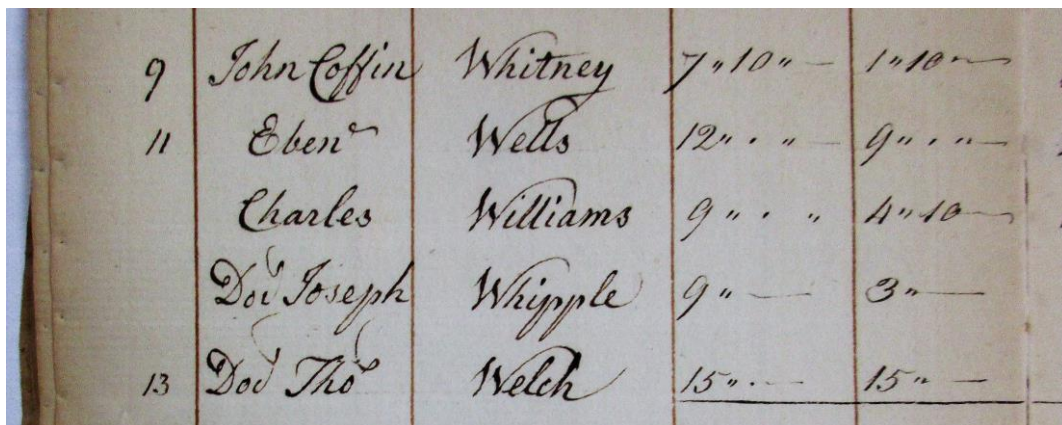 9 John Coffin Whitney 7 " 10 " — 1 " 10 " —
11 Eben^r Wells 12 " . " — 9 " . " —
Charles Williams 9 " . " 4 " 10 —
Do^d Joseph Whipple 9 " — 3 " —
13 Do^d Tho^s Welch 15 " . — 15 " —